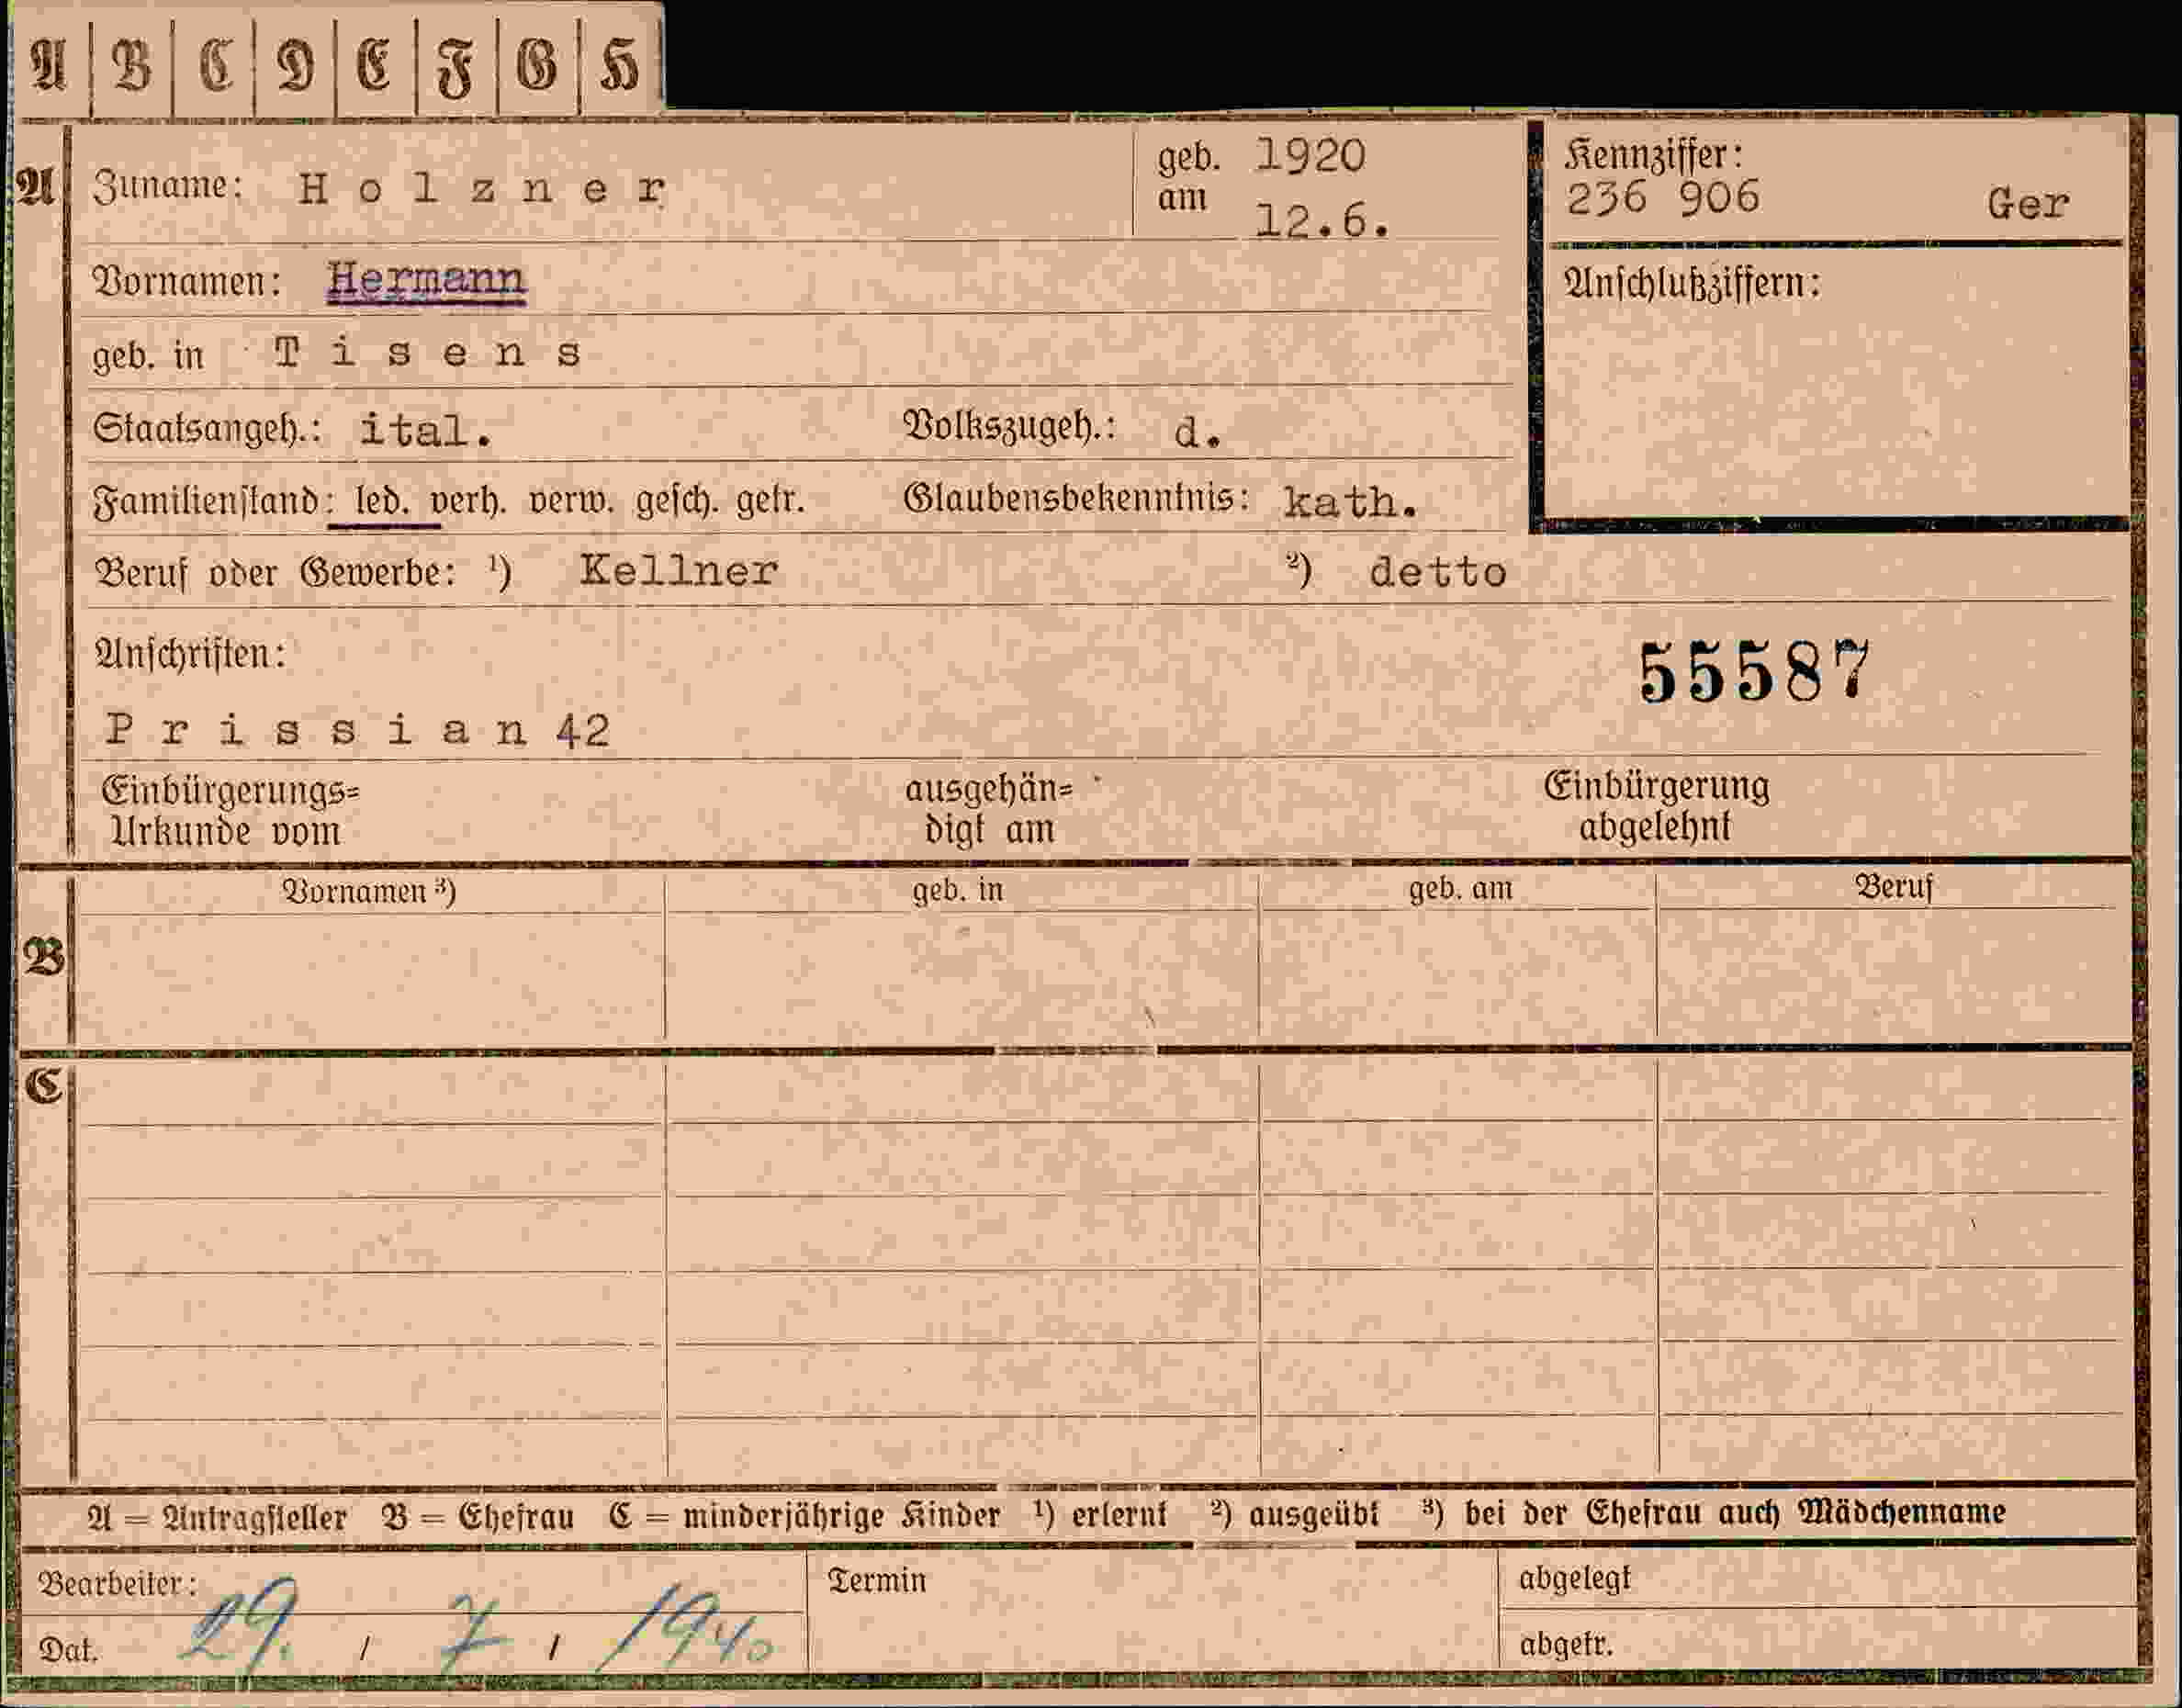 A B C D E F G H
A Zuname: Holzner geb. am 1920 12.6. Kennziffer: 236 906 Ger
Vornamen: Hermann Anschlußziffern:
geb. in Tisens
Staatsangeh.: ital. Volkszugeh.: d.
Familienstand: led. verh. verw. gesch. getr. Glaubensbekenntnis: kath.
Beruf oder Gewerbe: ¹) Kellner ²) detto
Anschriften: 55587
Prissian 42
Einbürgerungs= ausgehän= Einbürgerung
Urkunde vom digt am abgelehnt
Vornamen ³) geb. in geb. am Beruf
B
C
A = Antragsteller B = Ehefrau C = minderjährige Kinder ¹) erlernt ²) ausgeübt ³) bei der Ehefrau auch Mädchenname
Bearbeiter: Termin abgelegt
Dat. 29. / 7 / 1940 abgetr.